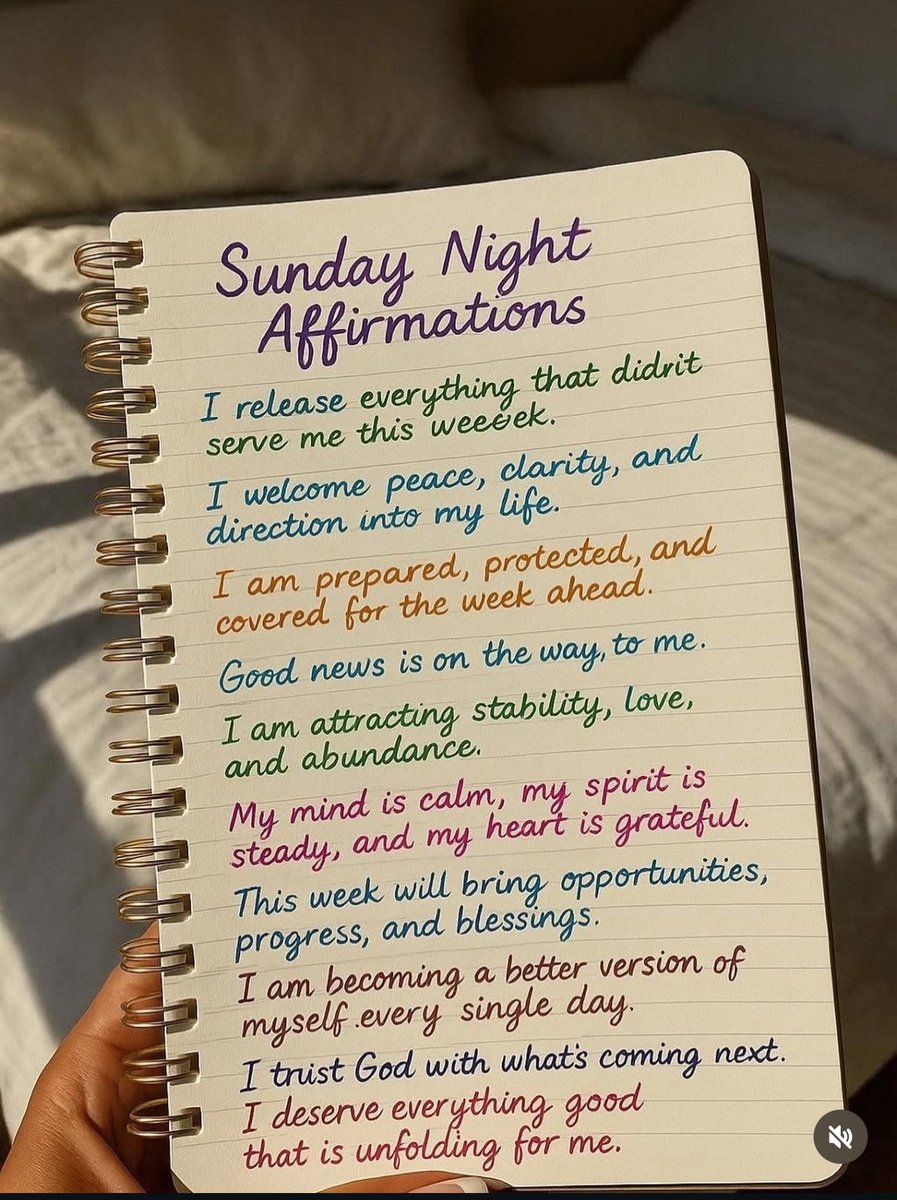 Sunday Night
Affirmations
I release everything that didrit
serve me this weeeek.
I welcome peace, clarity, and
direction into my life.
I am prepared, protected, and
covered for the week ahead.
Good news is on the way, to me.
I am attracting stability, love,
and abundance.
My mind is calm, my spirit is
steady, and my heart is grateful.
This week will bring opportunities,
progress, and blessings.
I am becoming a better version of
myself .every single day.
I trust God with what's coming next.
I deserve everything good
that is unfolding for me.